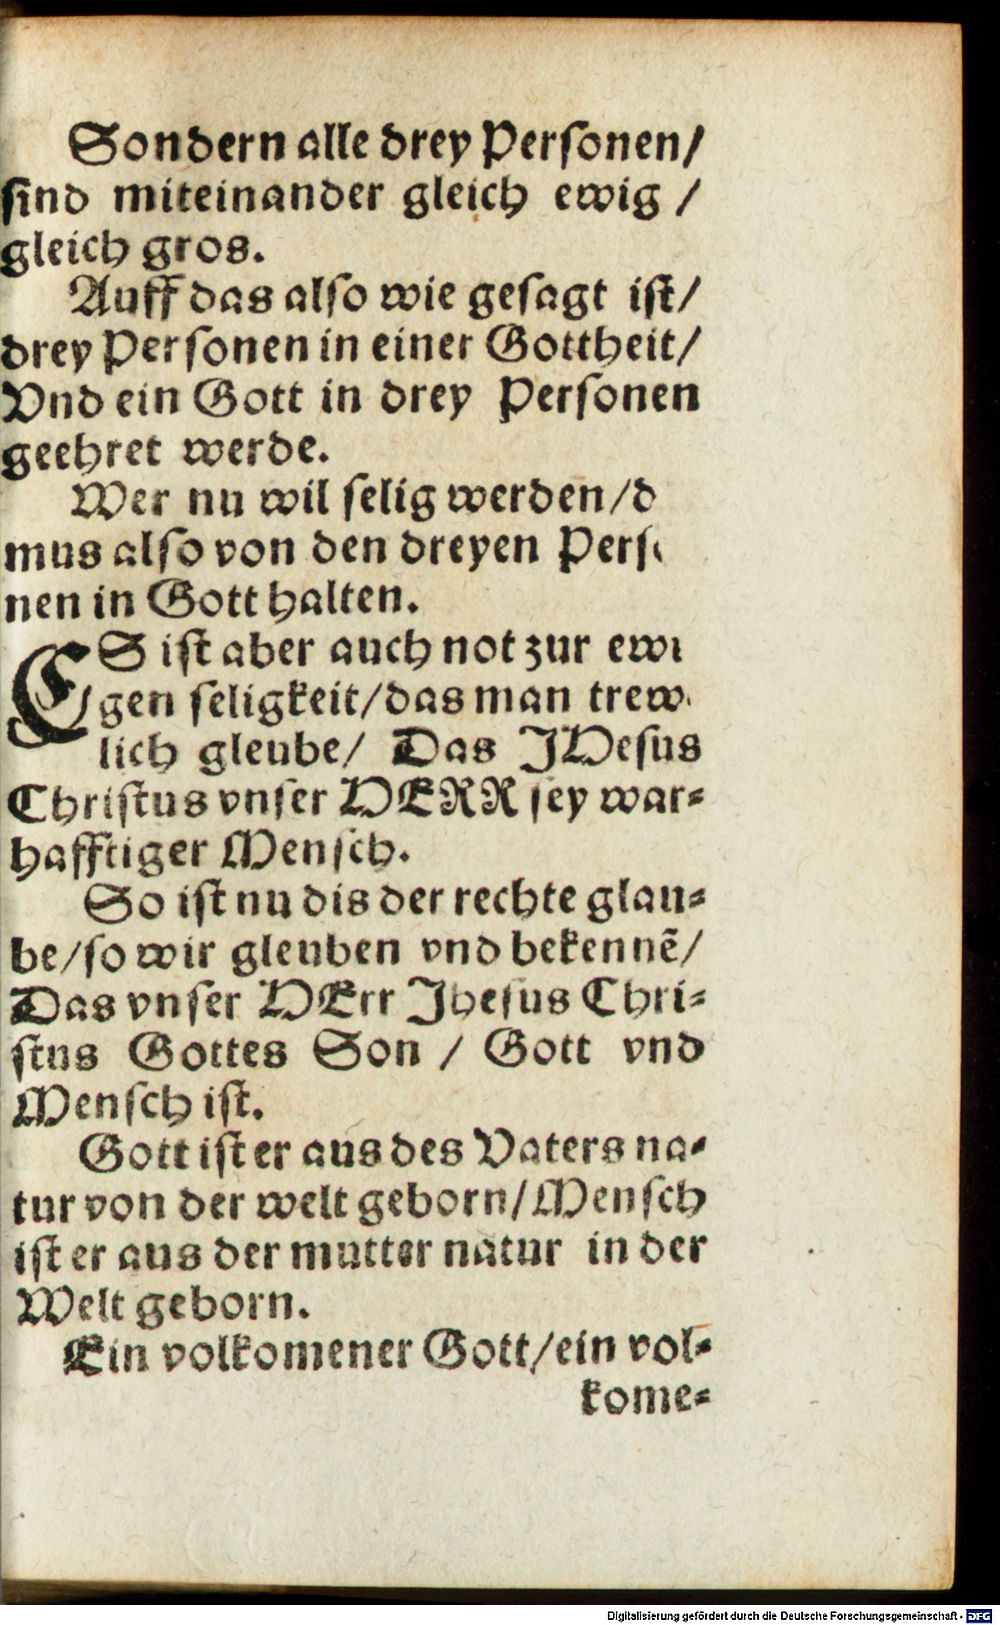 Sondern alle drey Personen/
sind miteinander gleich ewig /
gleich gros.
Auff das also wie gesagt ist/
drey Personen in einer Gottheit/
Vnd ein Gott in drey Personen
geehret werde.
Wer nu wil selig werden/d
mus also von den dreyen Pers
nen in Gott halten.
ES ist aber auch not zur ewi
gen seligkeit/das man trew
lich gleube/ Das JHesus
Christus vnser HERR sey war-
hafftiger Mensch.
So ist nu dis der rechte glau-
be/so wir gleuben vnd bekennē/
Das vnser HErr Jhesus Chri-
stus Gottes Son / Gott vnd
Mensch ist.
Gott ist er aus des Vaters na-
tur von der welt geborn/Mensch
ist er aus der mutter natur in der
Welt geborn.
Ein volkomener Gott/ein vol-
kome-
Digitalisierung gefördert durch die Deutsche Forschungsgemeinschaft - DFG